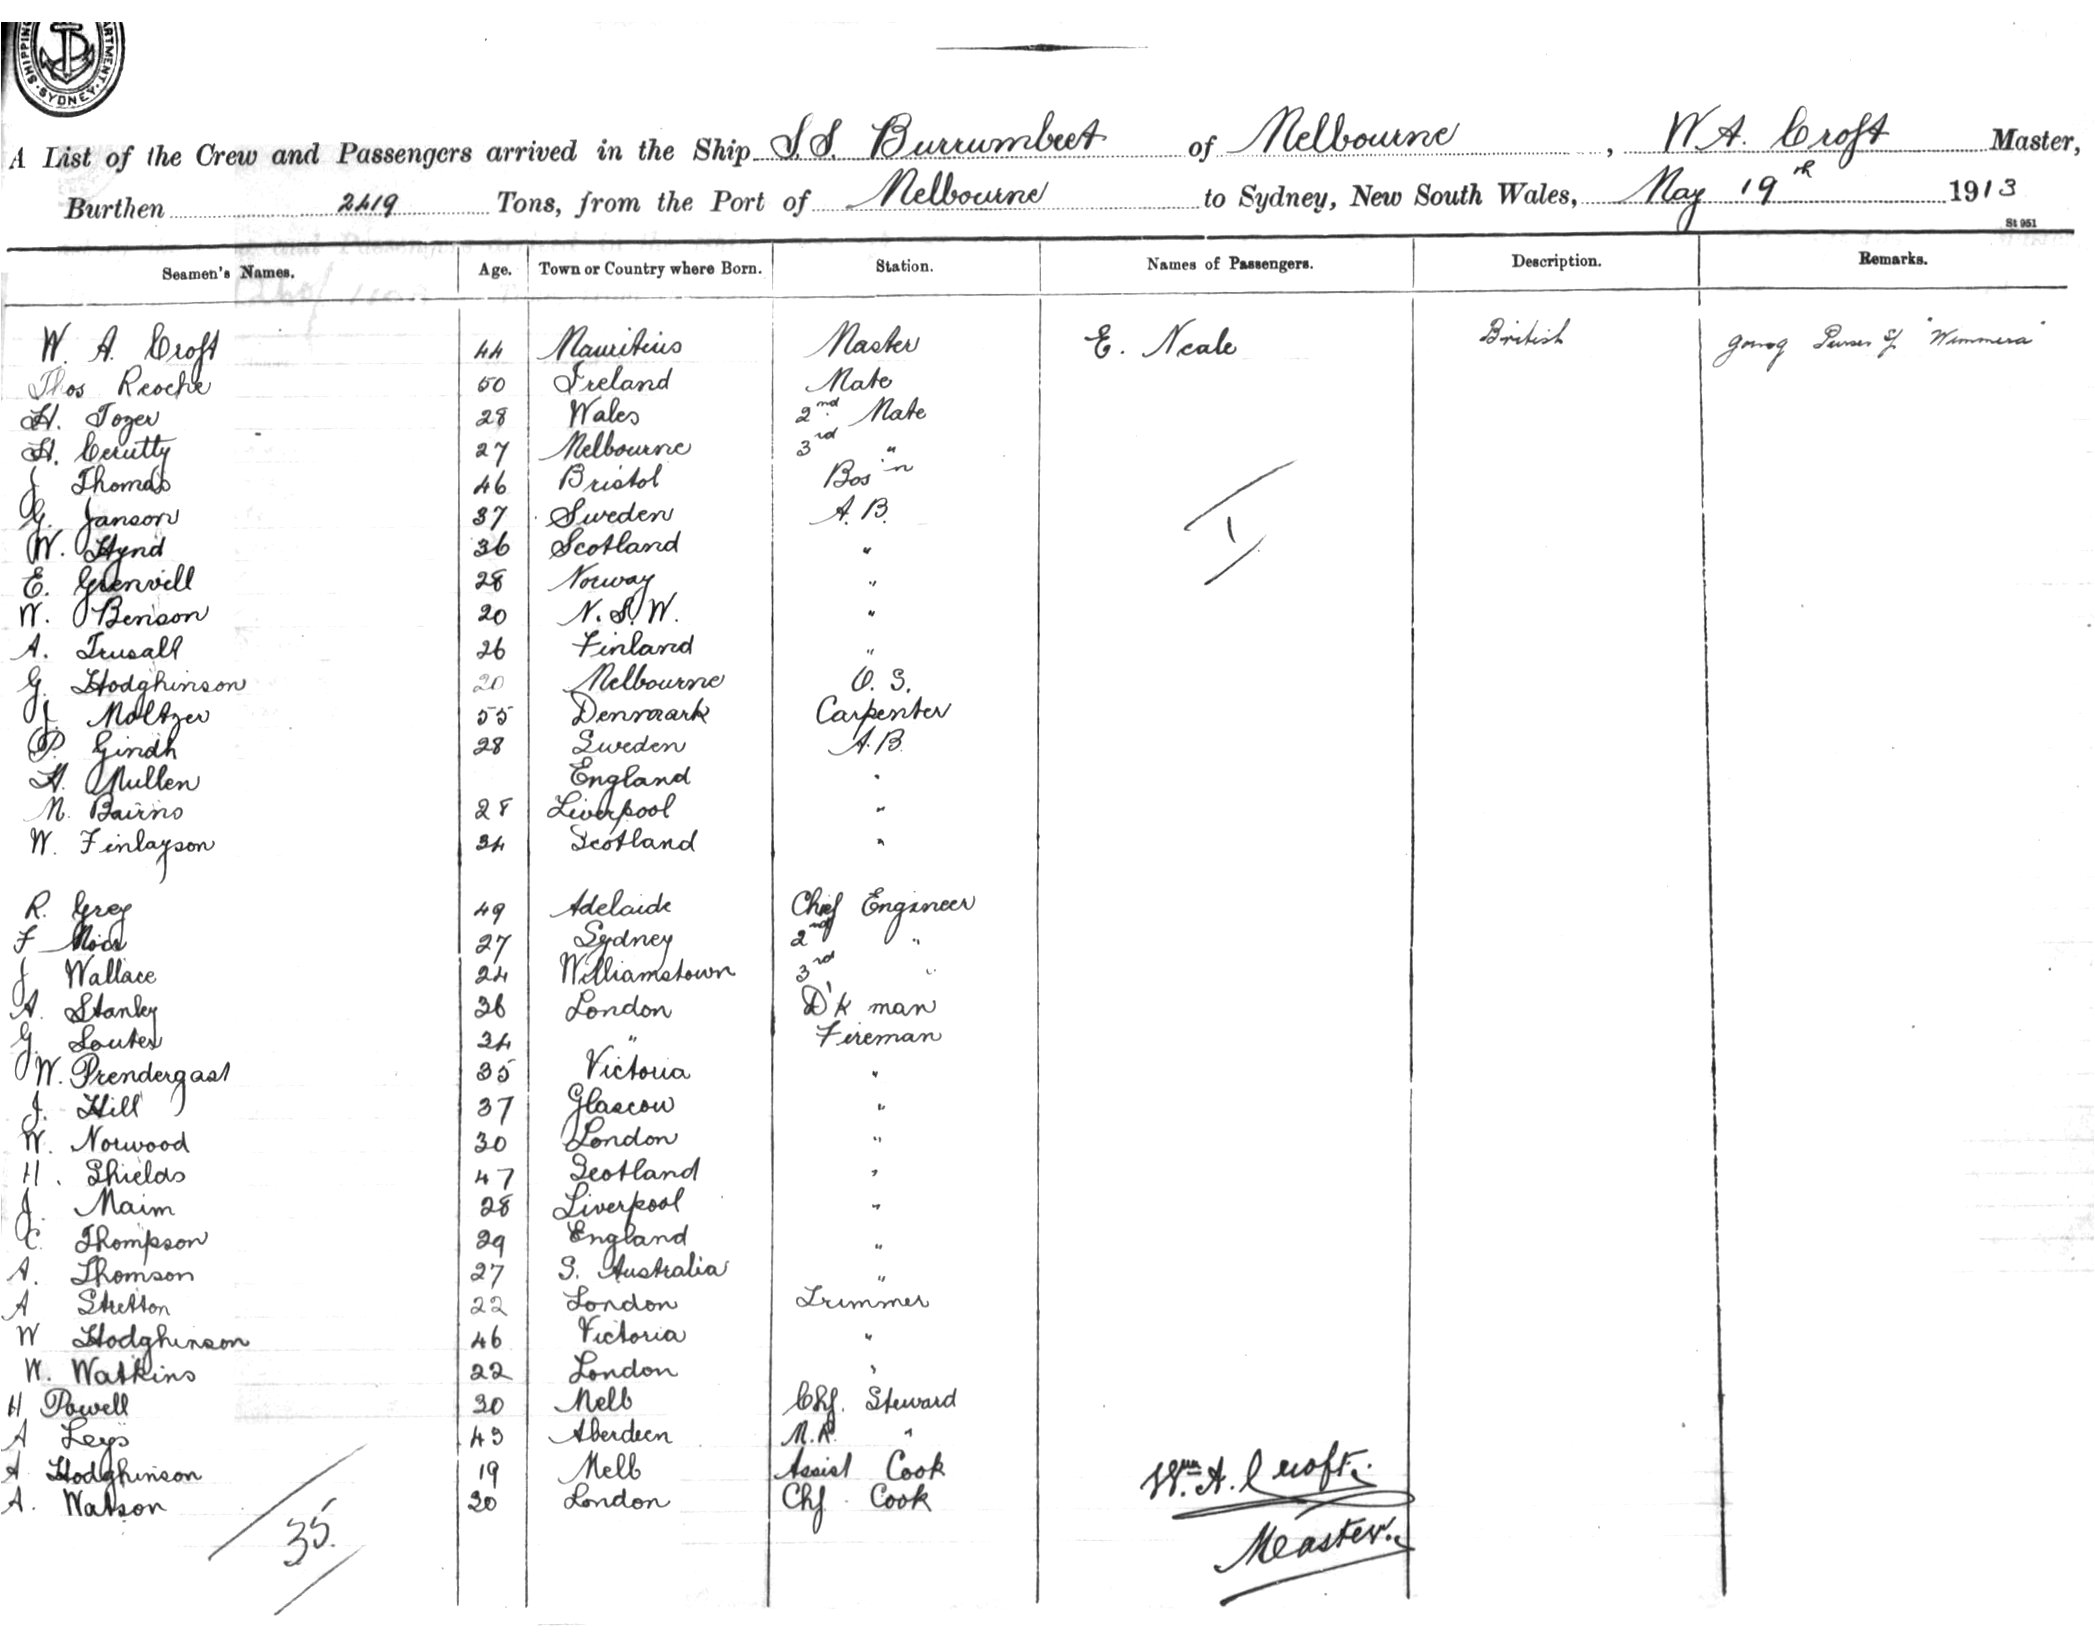 SHIPPING DEPARTMENT. SYDNEY.
A List of the Crew and Passengers arrived in the Ship S.S. Burrumbeet of Melbourne, W A. Croft Master,
Burthen 2419 Tons, from the Port of Melbourne to Sydney, New South Wales, May 19th 1913
St 951
Seamen's Names. Age. Town or Country where Born. Station. Names of Passengers. Description. Remarks.
W. A. Croft 44 Mauritius Master E. Neale British going Purser of "Wimmera"
Thos Reoche 50 Ireland Mate
H. Tozer 28 Wales 2nd Mate
H. Cerutty 27 Melbourne 3rd "
J Thomas 46 Bristol Bos'n
G. Janson 37 Sweden A.B.
W. Hynd 36 Scotland "
E. Grenvill 28 Norway "
W. Benson 20 N.S.W. "
A. Trusall 26 Finland "
G. Hodghinson 20 Melbourne O.S.
J. Moltzer 55 Denmark Carpenter
P. Gindh 28 Sweden A.B.
H. Mullen England "
M. Bairns 28 Liverpool "
W. Finlayson 34 Scotland "
R. Grey 49 Adelaide Chief Engineer
F 27 Sydney 2nd "
J Wallace 24 Williamstown 3rd "
A. Stanley 36 London D'k man
G. Souter 34 " Fireman
W. Prendergast 35 Victoria "
J. Hill 37 Glascow "
W. Norwood 30 London "
H. Shields 47 Scotland "
J. Maim 28 Liverpool "
C. Thompson 29 England "
A. Thomson 27 S. Australia "
A Stretton 22 London Trimmer
W Hodghinson 46 Victoria "
W. Watkins 22 London "
H Powell 30 Melb Chf. Steward
A Leys 43 Aberdeen M.R. "
A Hodghinson 19 Melb Assist Cook
A. Watson 30 London Chf. Cook
35.
1
Wm. A. Croft.
Master.